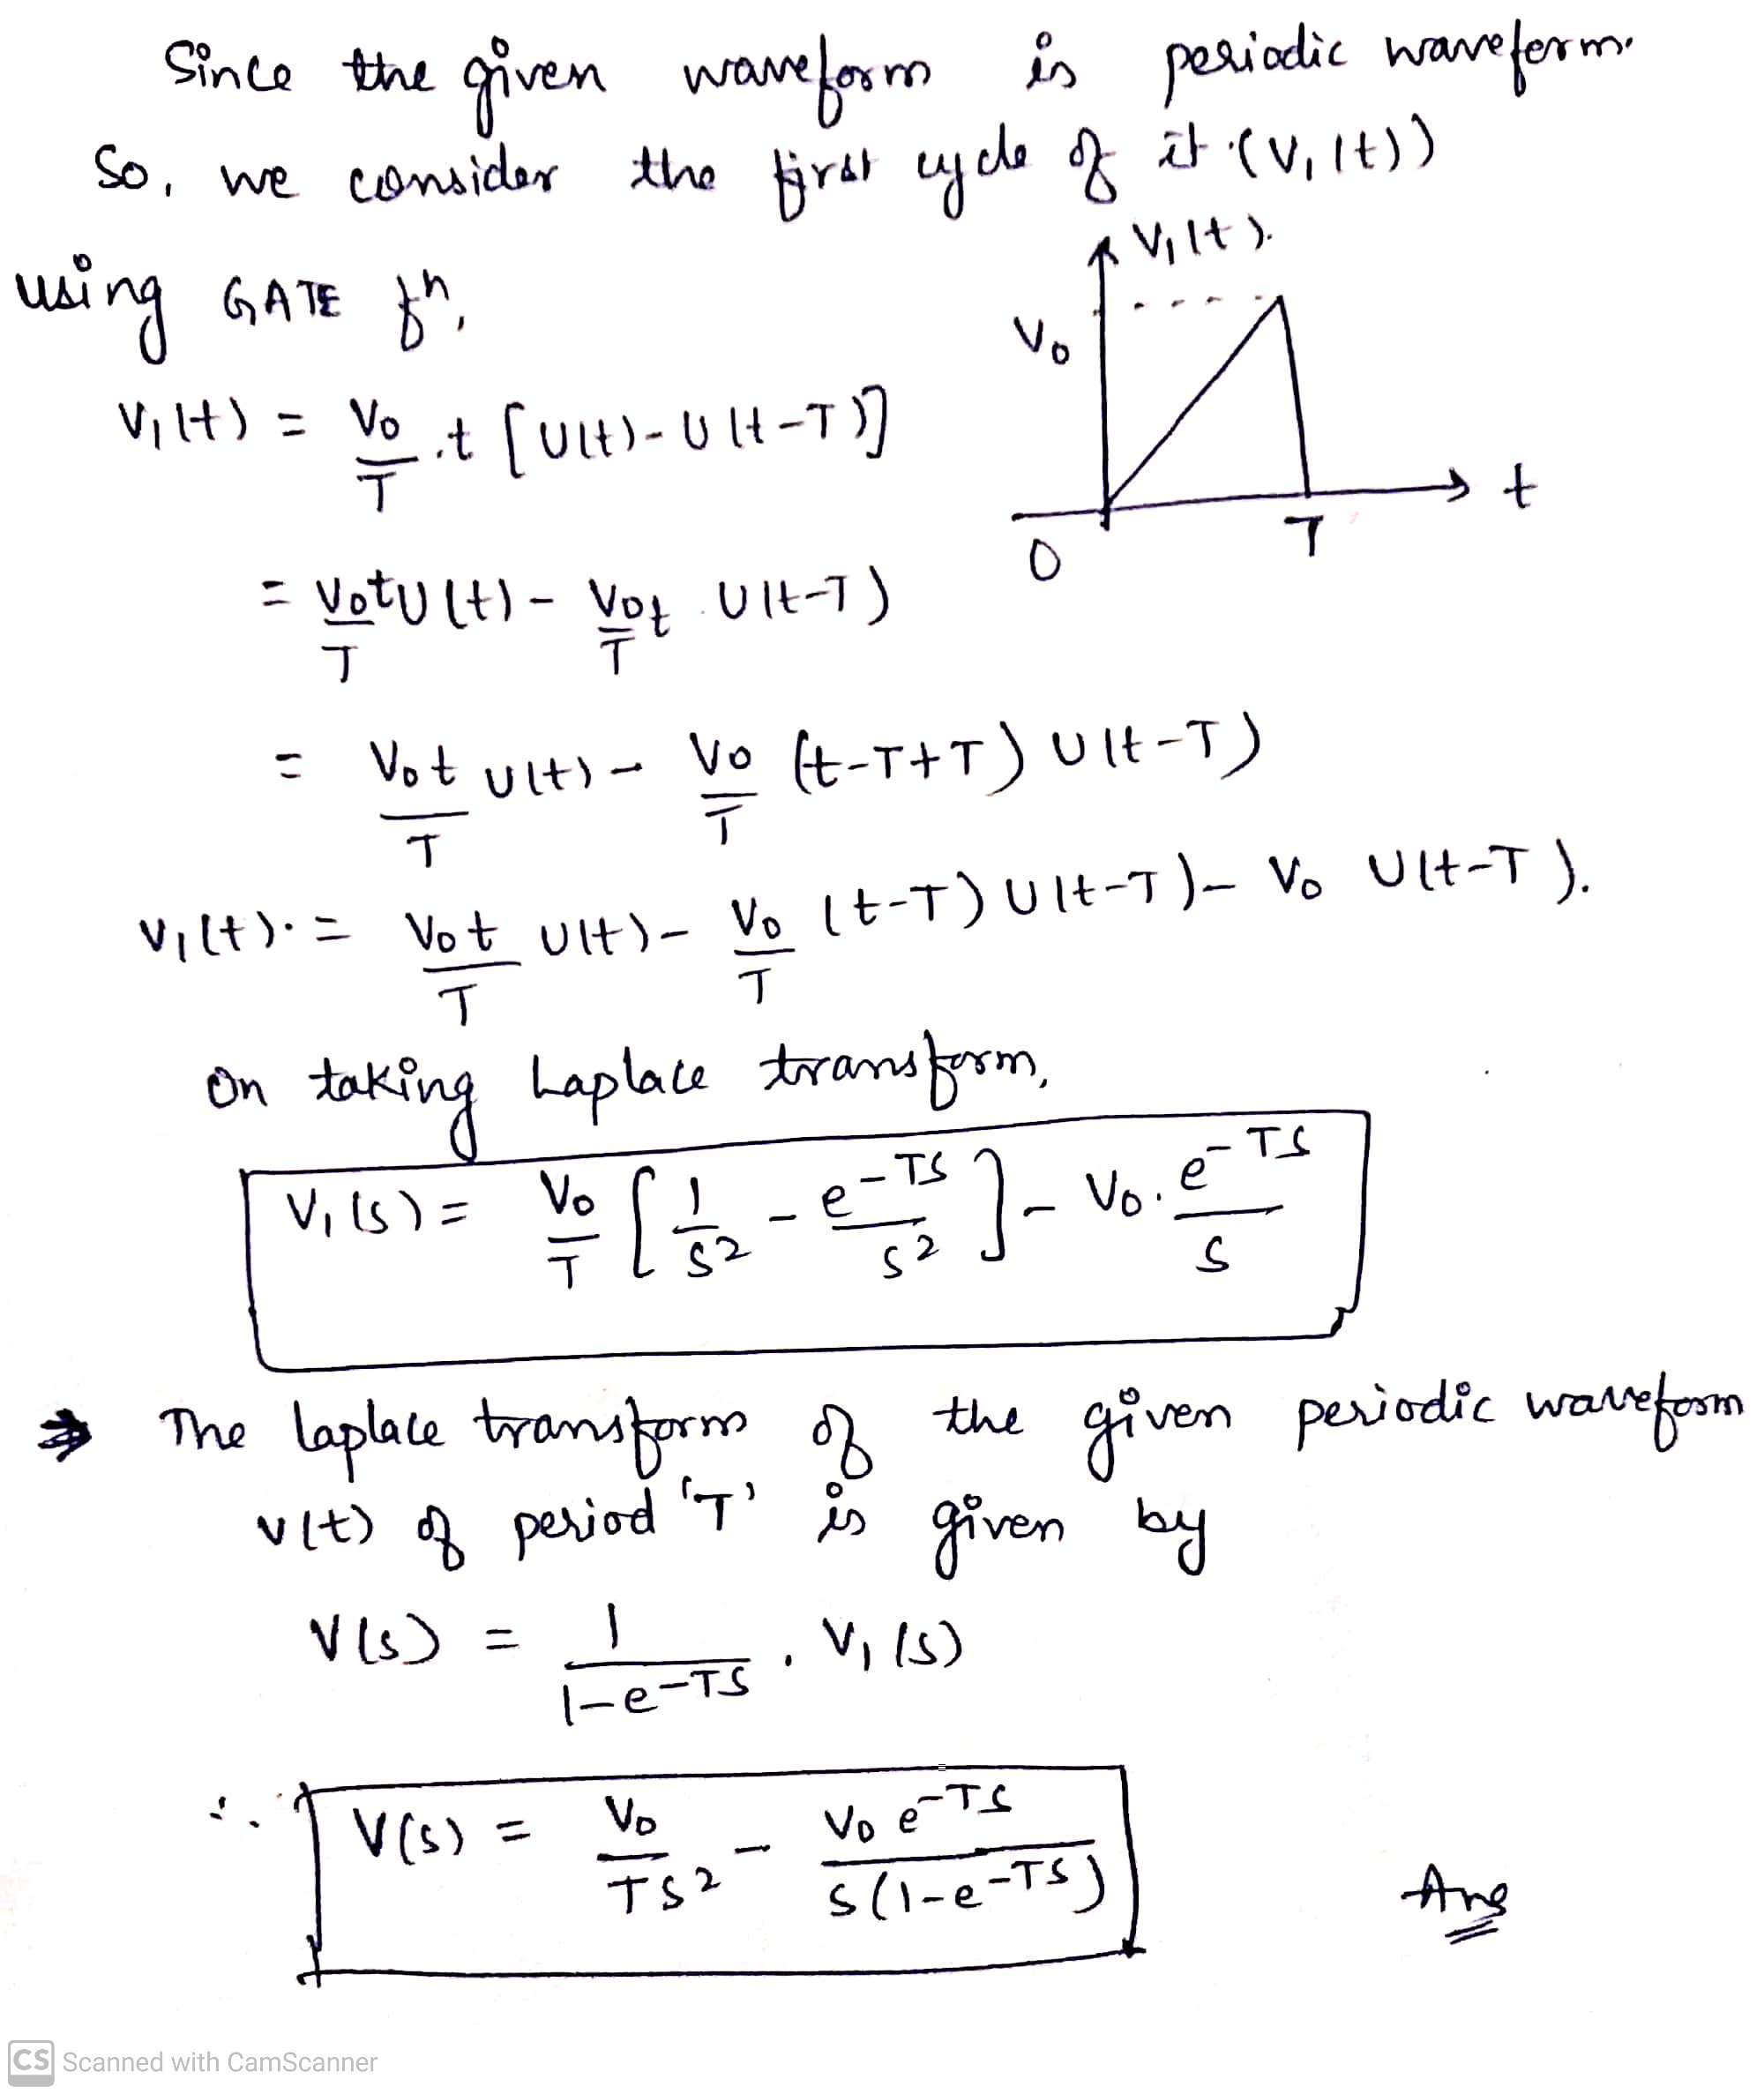 Since the given waveform is periodic waveform.
So, we consider the first cycle of it (V₁(t))
using GATE fn,
V₁(t)
V₀
0
T
t
V₁(t) = V₀/T .t [U(t)-U(t-T)]
= V₀tU(t)/T - V₀t/T . U(t-T)
= V₀t/T U(t) - V₀/T (t-T+T) U(t-T)
V₁(t) = V₀t/T U(t) - V₀/T (t-T) U(t-T) - V₀ U(t-T).
On taking Laplace transform,
V₁(s) = V₀/T [1/s² - e^-Ts/s²] - V₀.e^-Ts/s
→ The laplace transform of the given periodic waveform
v(t) of period 'T' is given by
V(s) = 1/(1-e^-Ts) . V₁(s)
∴ V(s) = V₀/Ts² - V₀e^-Ts/s(1-e^-Ts)
Ans
CS Scanned with CamScanner